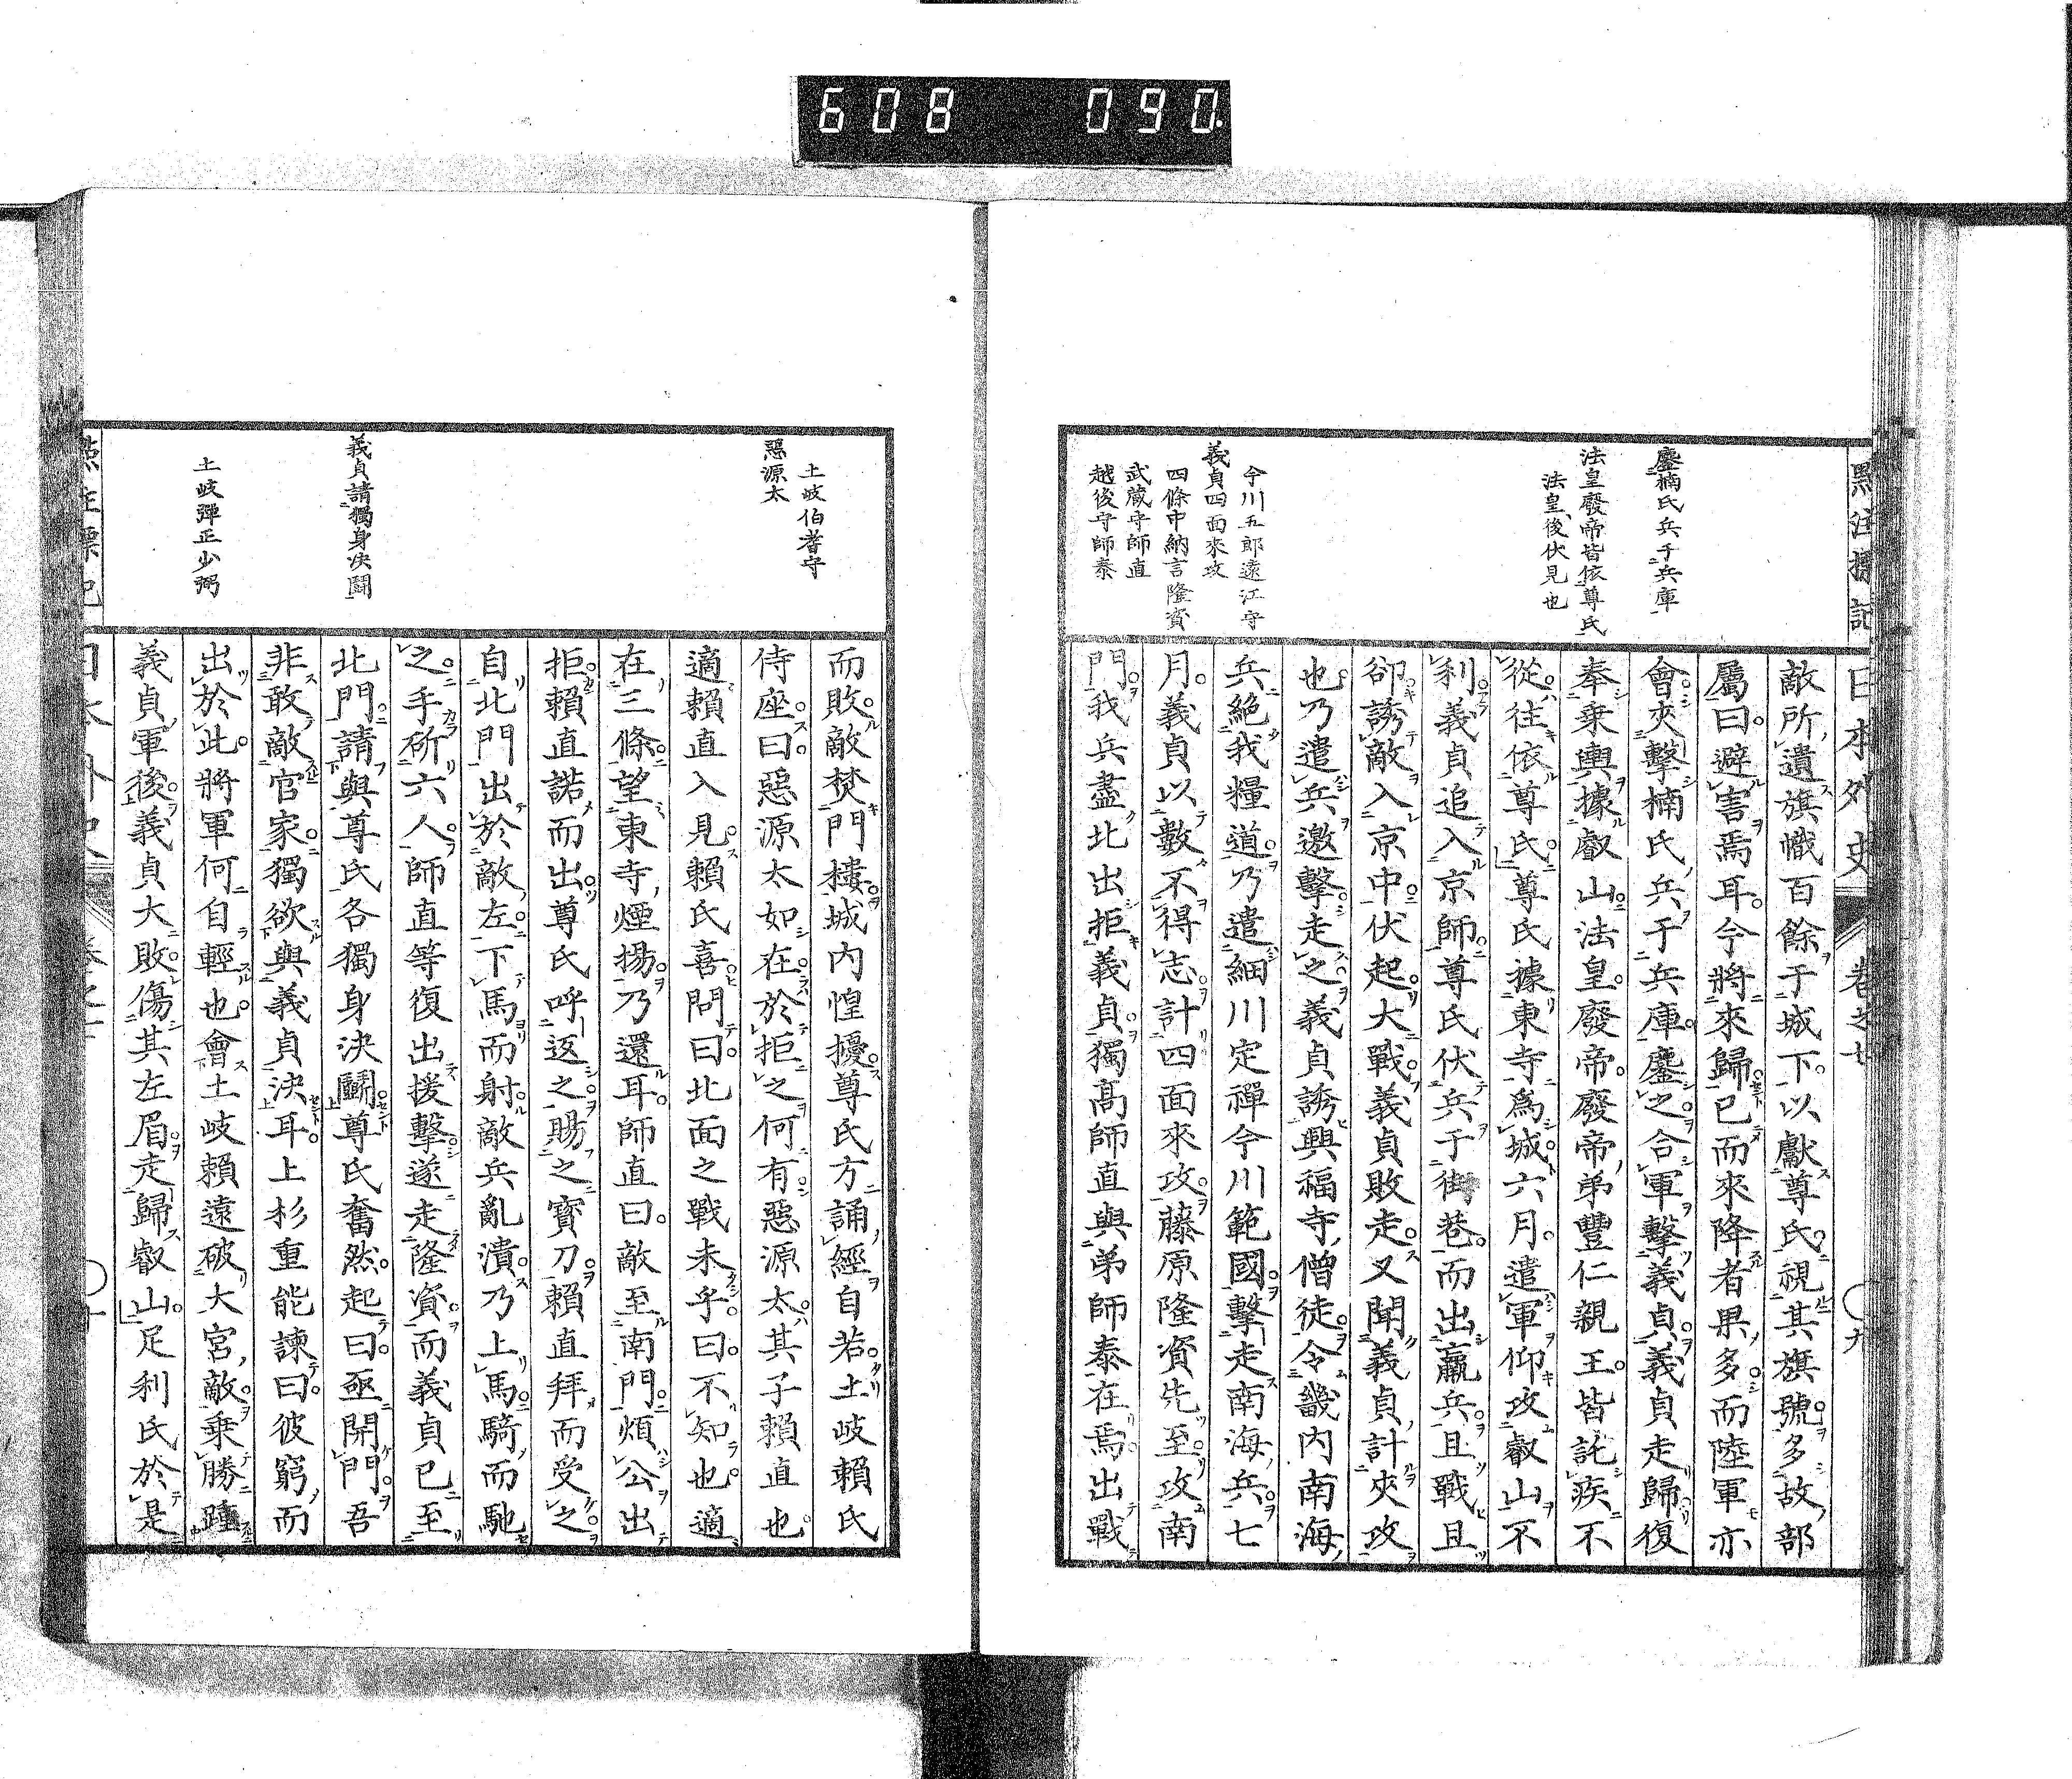 608 090
點注標記
日本外史 卷之七 〇九
鏖楠氏兵于兵庫
法皇廢帝皆依尊氏
法皇後伏見也
今川五郎遠江守
義貞四面來攻
四條中納言隆資
武藏守師直
越後守師泰
敵所遺旗幟百餘于城下以獻尊氏視其旗號多故部
屬曰避害焉耳今將來歸已而來降者果多而陸軍亦
會夾擊楠氏兵于兵庫鏖之合軍擊義貞義貞走歸復
奉乘輿據叡山法皇廢帝廢帝弟豐仁親王皆託疾不
從往依尊氏尊氏據東寺爲城六月遣軍仰攻叡山不
利義貞追入京師尊氏伏兵于街巷而出羸兵且戰且
卻誘敵入京中伏起大戰義貞敗走又聞義貞計夾攻
也乃遣兵邀擊走之義貞誘興福寺僧徒令畿内南海
兵絕我糧道乃遣細川定禪今川範國擊走南海兵七
月義貞以數不得志計四面來攻藤原隆資先至攻南
門我兵盡北出拒義貞獨高師直與弟師泰在焉出戰
土岐伯耆守
惡源太
義貞請獨身決鬪
土岐彈正少弼
而敗敵焚門樓城内惶擾尊氏方誦經自若土岐賴氏
侍座曰惡源太如在於拒之何有惡源太其子賴直也
適賴直入見賴氏喜問曰北面之戰未乎曰不知也適
在三條望東寺煙揚乃還耳師直曰敵至南門煩公出
拒賴直諾而出尊氏呼返之賜之寳刀賴直拜而受之
自北門出於敵左下馬而射敵兵亂潰乃上馬騎而馳
之手斫六人師直等復出援擊遂走隆資而義貞已至
北門請與尊氏各獨身決鬪尊氏奮然起曰亟開門吾
非敢敵官家獨欲與義貞決耳上杉重能諫曰彼窮而
出於此將軍何自輕也會土岐賴遠破大宮敵乘勝踵
義貞軍後義貞大敗傷其左眉走歸叡山足利氏於是